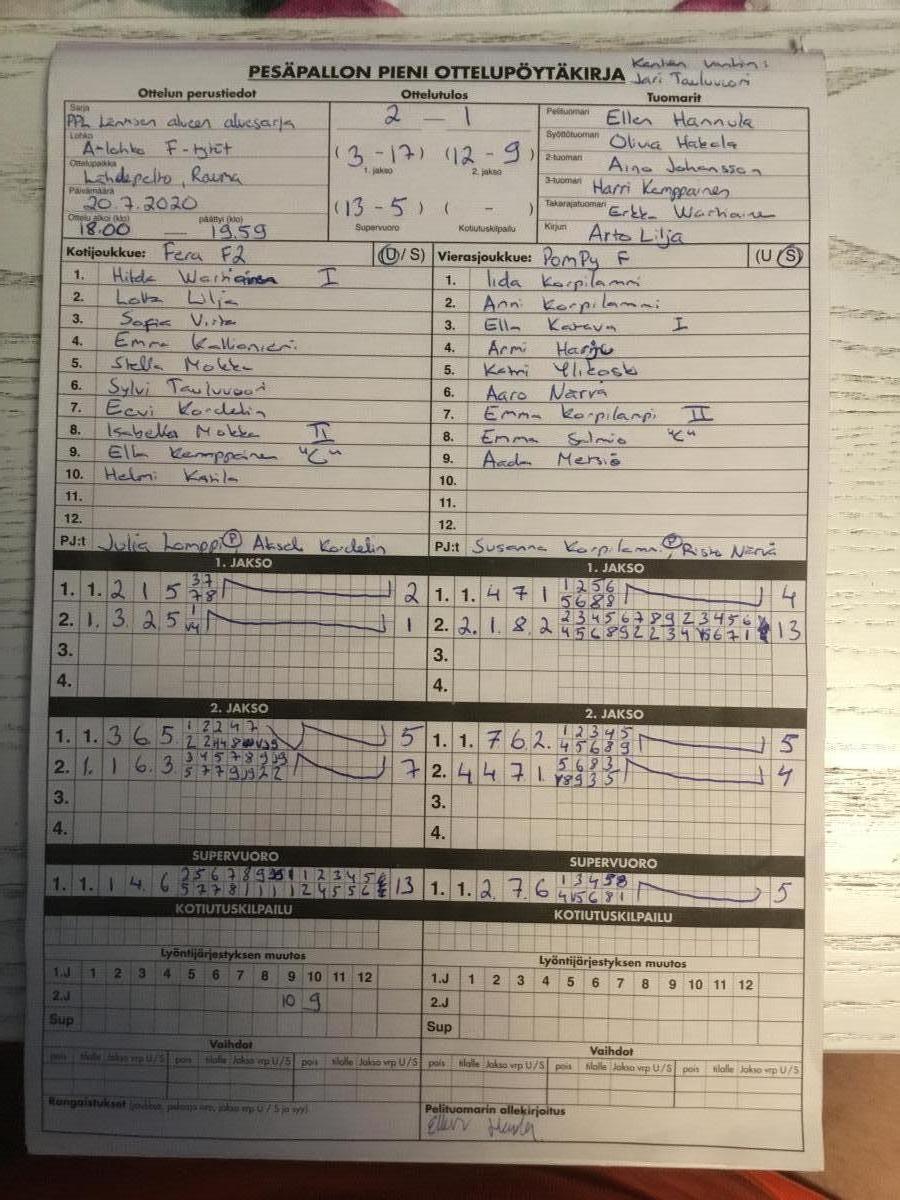 Kentän vanhin:
PESÄPALLON PIENI OTTELUPÖYTÄKIRJA Jari Tauluvuori
Ottelun perustiedot Ottelutulos Tuomarit
Sarja
PPL Läntisen alueen aluesarja
Lohko
A-lohko F-tytöt
Ottelupaikka
Lähdepelto, Rauma
Päivämäärä
20.7.2020
Ottelu alkoi (klo) päättyi (klo)
18.00 — 19.59
2 — 1
(3 - 17) (12 - 9)
1. jakso 2. jakso
(13 - 5) ( - )
Supervuoro Kotiutuskilpailu
Pelituomari Ellen Hannula
Syöttötuomari Olivia Hakala
2-tuomari Aino Johansson
3-tuomari Harri Kemppainen
Takarajatuomari Erkka Warhiainen
Kirjuri Arto Lilja
Kotijoukkue: Fera F2 (U / S)
1. Hilda Warhiainen I
2. Lotta Lilja
3. Sofia Virta
4. Emma Kallionieri
5. Stella Mokka
6. Sylvi Tauluvuori
7. Eevi Kordelin
8. Isabella Mokka II
9. Ella Kemppainen "C"
10. Helmi Karila
11.
12.
PJ:t Julia Lamppi P Aksel Kordelin
Vierasjoukkue: PomPy F (U / S)
1. Iida Korpilammi
2. Anni Korpilammi
3. Ella Karava I
4. Armi Harju
5. Katri Ylikoski
6. Aaro Närvä
7. Emma Korpilampi II
8. Emma Salmio "C"
9. Aada Mersiö
10.
11.
12.
PJ:t Susanna Korpilammi P, Risto Närvä
1. JAKSO
1. 1. 2 1 5 2
2. 1. 3. 2 5 1
3.
4.
1. JAKSO
1. 1. 4 7 1 1 2 5 6 4
5 6 8 8
2. 2. 1. 8. 2 13
3.
4.
2. JAKSO
1. 1. 3 6 5. 5
2. 1. 1 6. 3. 7
3.
4.
2. JAKSO
1. 1. 7 6 2. 1 2 3 4 5 5
4 5 6 8 9
2. 4 4 7 1. 4
3.
4.
SUPERVUORO
1. 1. 1 4. 6 13
SUPERVUORO
1. 1. 2. 7 6 5
KOTIUTUSKILPAILU
KOTIUTUSKILPAILU
Lyöntijärjestyksen muutos
1.J 1 2 3 4 5 6 7 8 9 10 11 12
2.J 10 9
Sup
Lyöntijärjestyksen muutos
1.J 1 2 3 4 5 6 7 8 9 10 11 12
2.J
Sup
Vaihdot
pois tilalle Jakso vrp U/S pois tilalle Jakso vrp U/S pois tilalle Jakso vrp U/S
Vaihdot
pois tilalle Jakso vrp U/S pois tilalle Jakso vrp U/S pois tilalle Jakso vrp U/S
Rangaistukset (joukkue, pelaaja nro, jakso vrp U / S ja syy):
Pelituomarin allekirjoitus